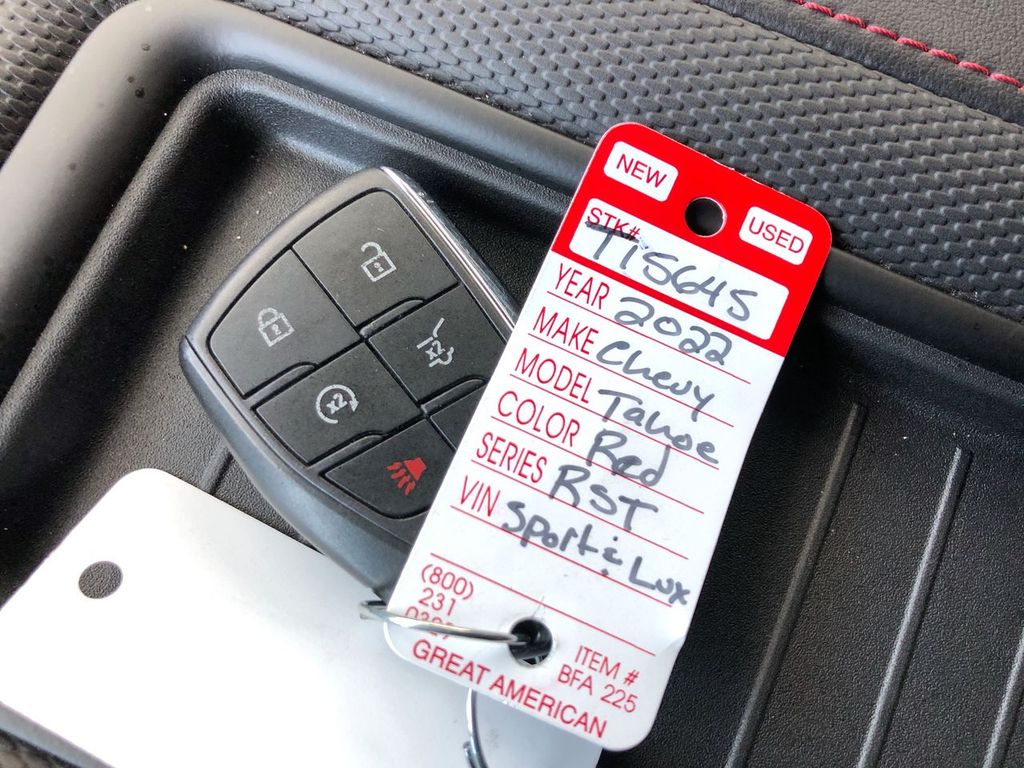 NEW
USED
STK# T15645
YEAR 2022
MAKE Chevy
MODEL Tahoe
COLOR Red
SERIES RST
VIN Sport & Lux
(800)
231
ITEM #
BFA 225
GREAT AMERICAN
x2
x2